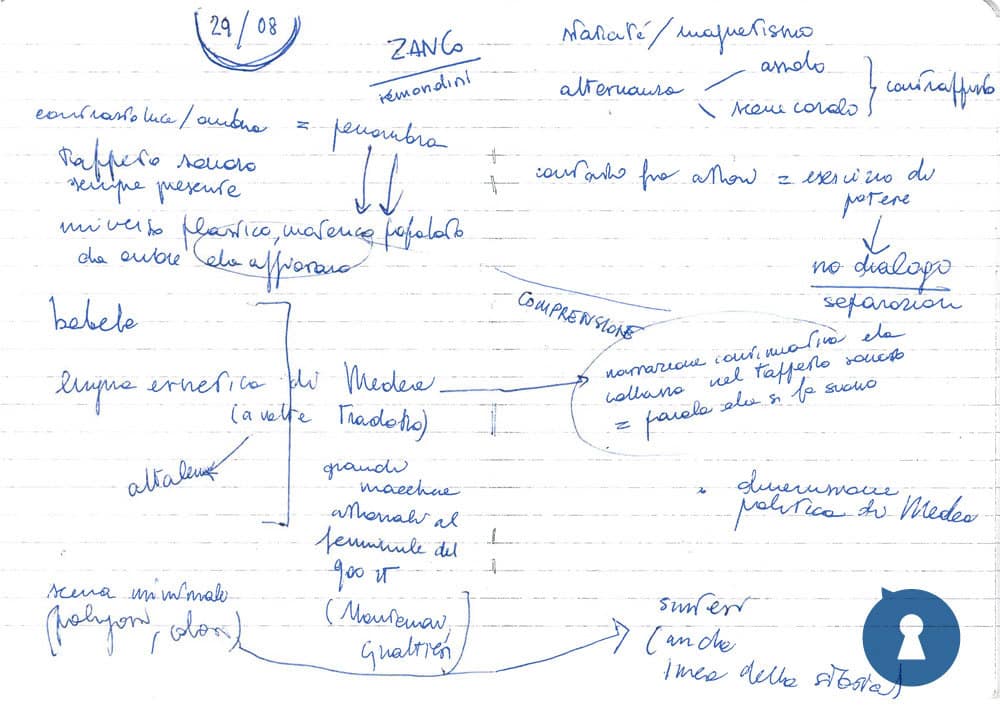 29/08
ZANCO
remondini
contrasto luce/ombra = penombra
tappeto sonoro
sempre presente
universo plastico, materico popolato
da ombre che affiorano
babele
lingua ermetica di Medea
(a volte tradotta)
altalena
grandi
macchine
attoriali al
femminile del
900 it
(Montemari,
Gualtieri)
scena minimale
(polygon, colori)
staticità/magnetismo
alternanza
assolo
scene corali
contrappunto
contrasto fra attori = esercizio di
potere
no dialogo
separazioni
COMPRENSIONE
narrazione continuativa che
collassa nel tappeto sonoro
= parola che si fa suono
dimensione
politica di Medea
sintesi
(anche
linea della storia)